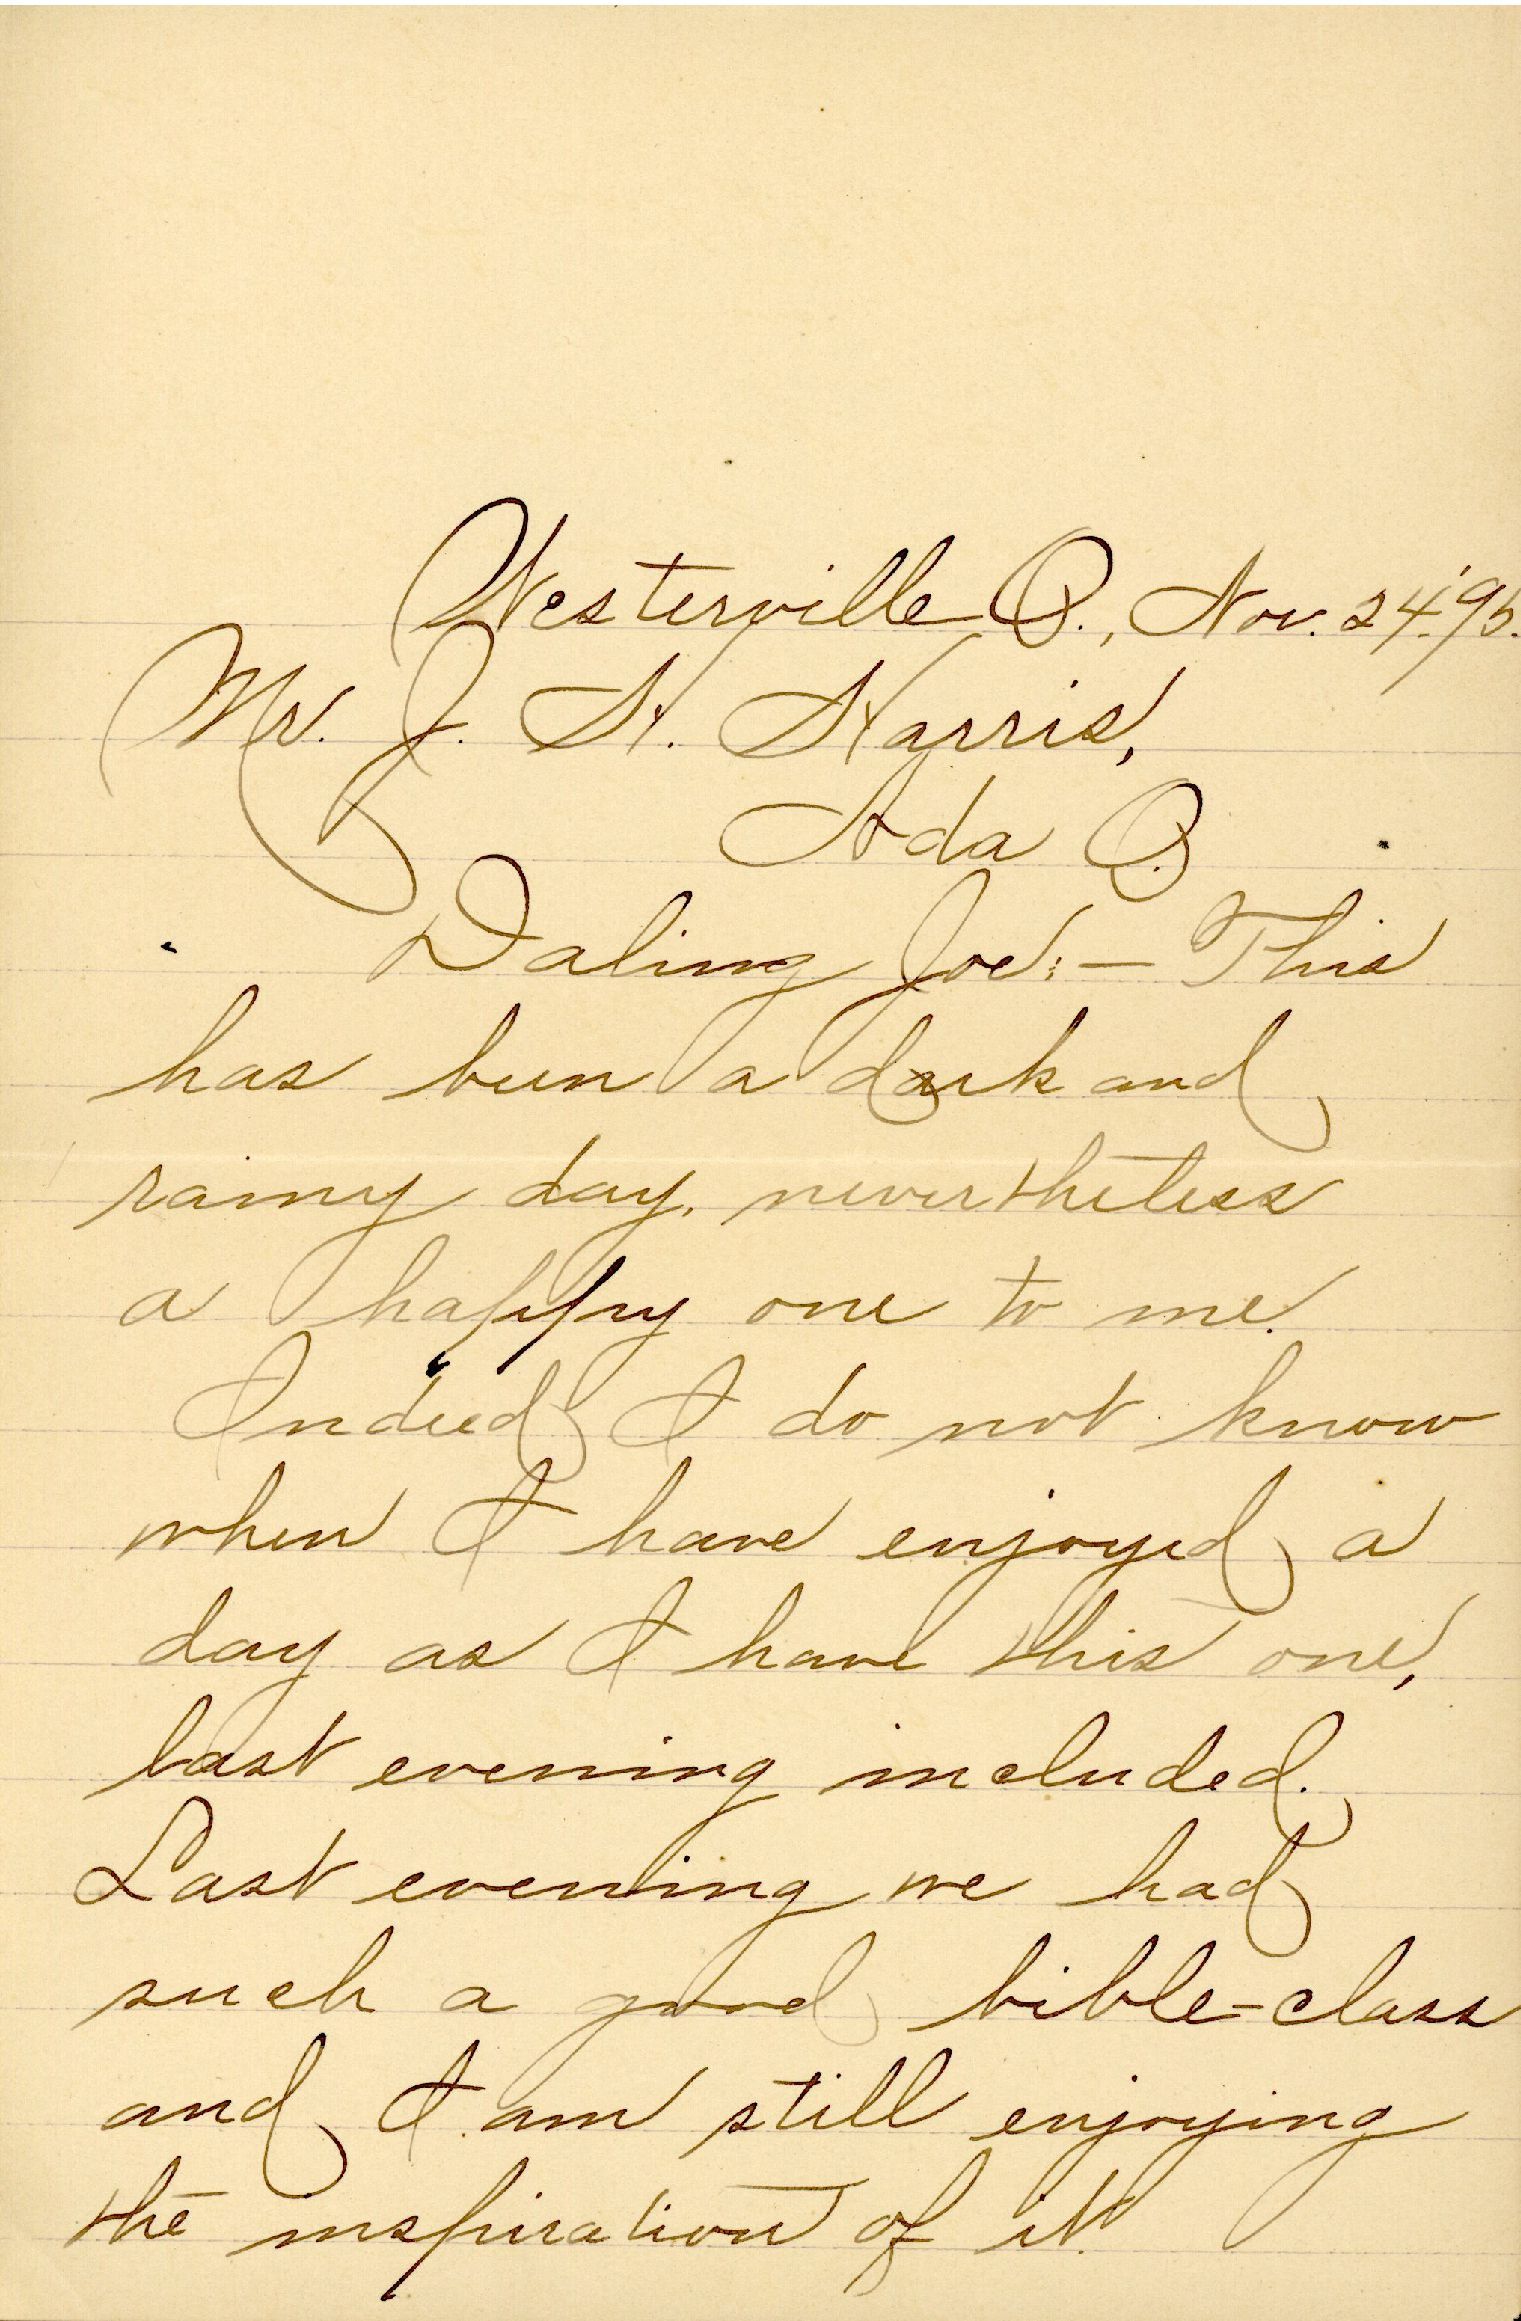 Westerville O., Nov. 24, '95.
Mr. J. H. Harris,
Ada O.
Daling Joe: — This
has been a dark and
rainy day, nevertheless
a happy one to me.
Indeed I do not know
when I have enjoyed a
day as I have this one,
last evening included.
Last evening we had
such a good bible-class
and I am still enjoying
the inspiration of it.